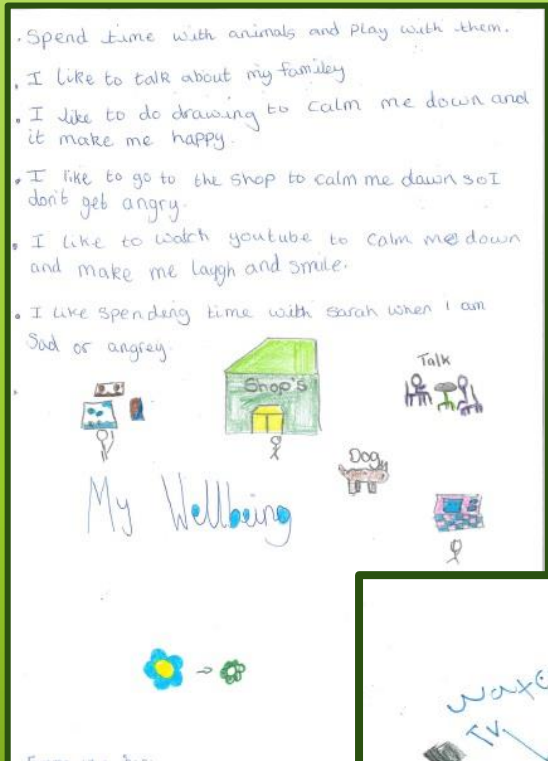 . Spend time with animals and play with them.
. I like to talk about my familey
. I like to do drawing to calm me down and
it make me happy.
. I like to go to the shop to calm me down so I
don't get angry.
. I like to watch youtube to calm me down
and make me laygh and smile.
. I like spendeng time with sarah when I am
Sad or angrey.
Talk
Shop's
Dog
My Wellbeing
TV